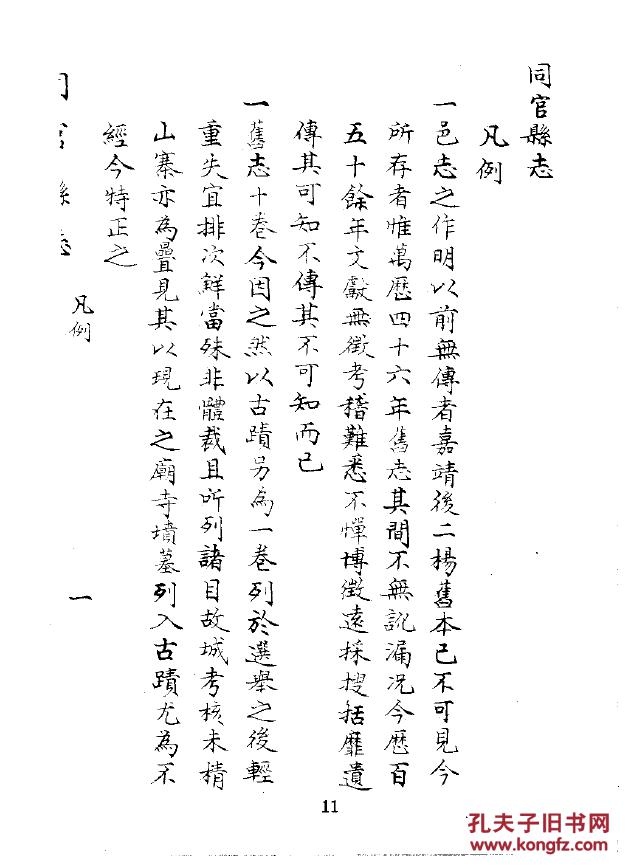 同官縣志
凡例
一邑志之作明以前無傳者嘉靖後二楊舊本已不可見今
所存者惟萬歷四十六年舊志其間不無訛漏况今歷百
五十餘年文獻無徵考稽難悉不憚博徵遠採搜括靡遺
傳其可知不傳其不可知而已
一舊志十卷今因之然以古蹟另為一卷列於選舉之後輕
重失宜排次鮮當殊非體裁且所列諸目故城考核未精
山寨亦為疊見其以現在之廟寺墳墓列入古蹟尤為不
經今特正之
同官縣志
凡例
一
11
孔夫子旧书网
www.kongfz.com